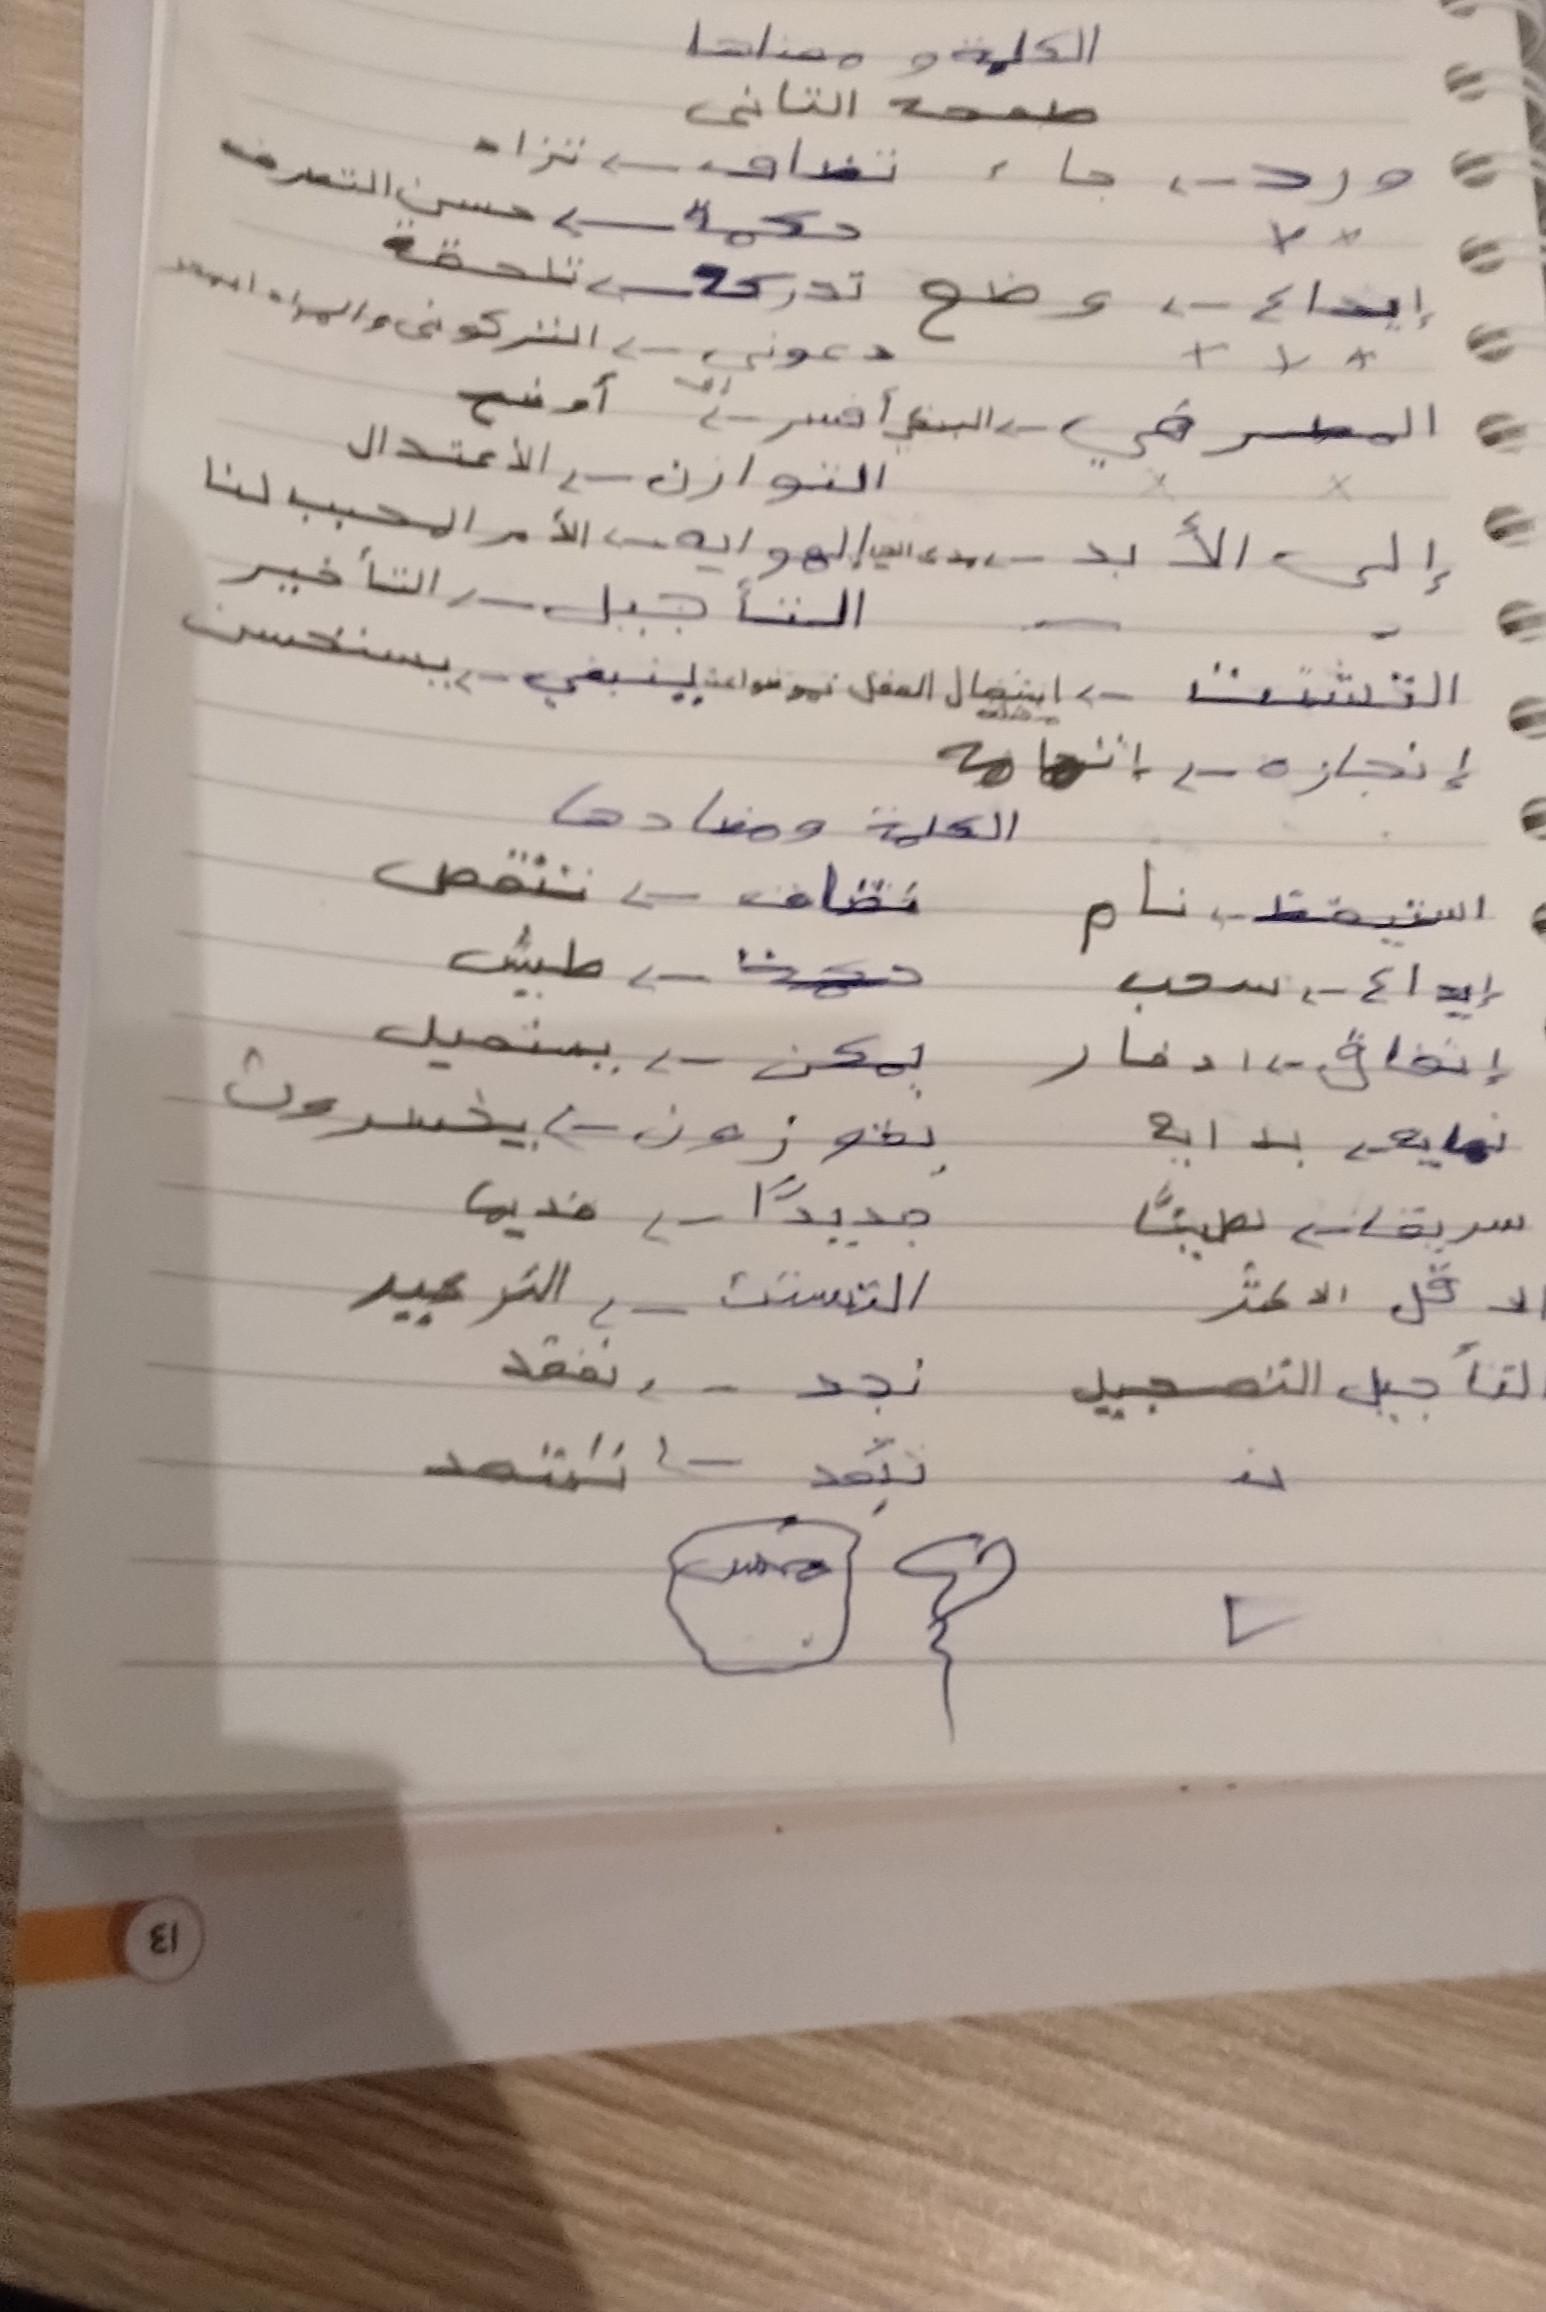 الكلمة و معناها
صفحه التانى
ورد ← جاء تضاف ← تزاد
حكمة ← حسن التصرف
إيداع ← وضع تدركة ← تلحقة
دعونى ← اتركونى والمراد
المصرفي ← البنكي أفسر ← أوضح
التوازن ← الأعتدال
إلى الأبد ← مدى الهوايه ← الأمر المحبب لنا
التأجيل ← التأخير
التشتت ← انشغال العقل ينبغي ← يستحسن
إنجازه ←
الكلمة ومضادها
استيقظ ← نام تضاف ← تنتقص
إيداع ← سحب حكمة ← طيش
إنفاق ← ادخار يمكن ← يستحيل
نهايه ← بدايه يفوزون ← يخسرون
سريعا ← بطيئًا جديدًا ← قديما
الاقل الاكثر التشتت ← التركيز
التأجيل التعجيل نجد ← نفقد
نبتعد ←
١٣